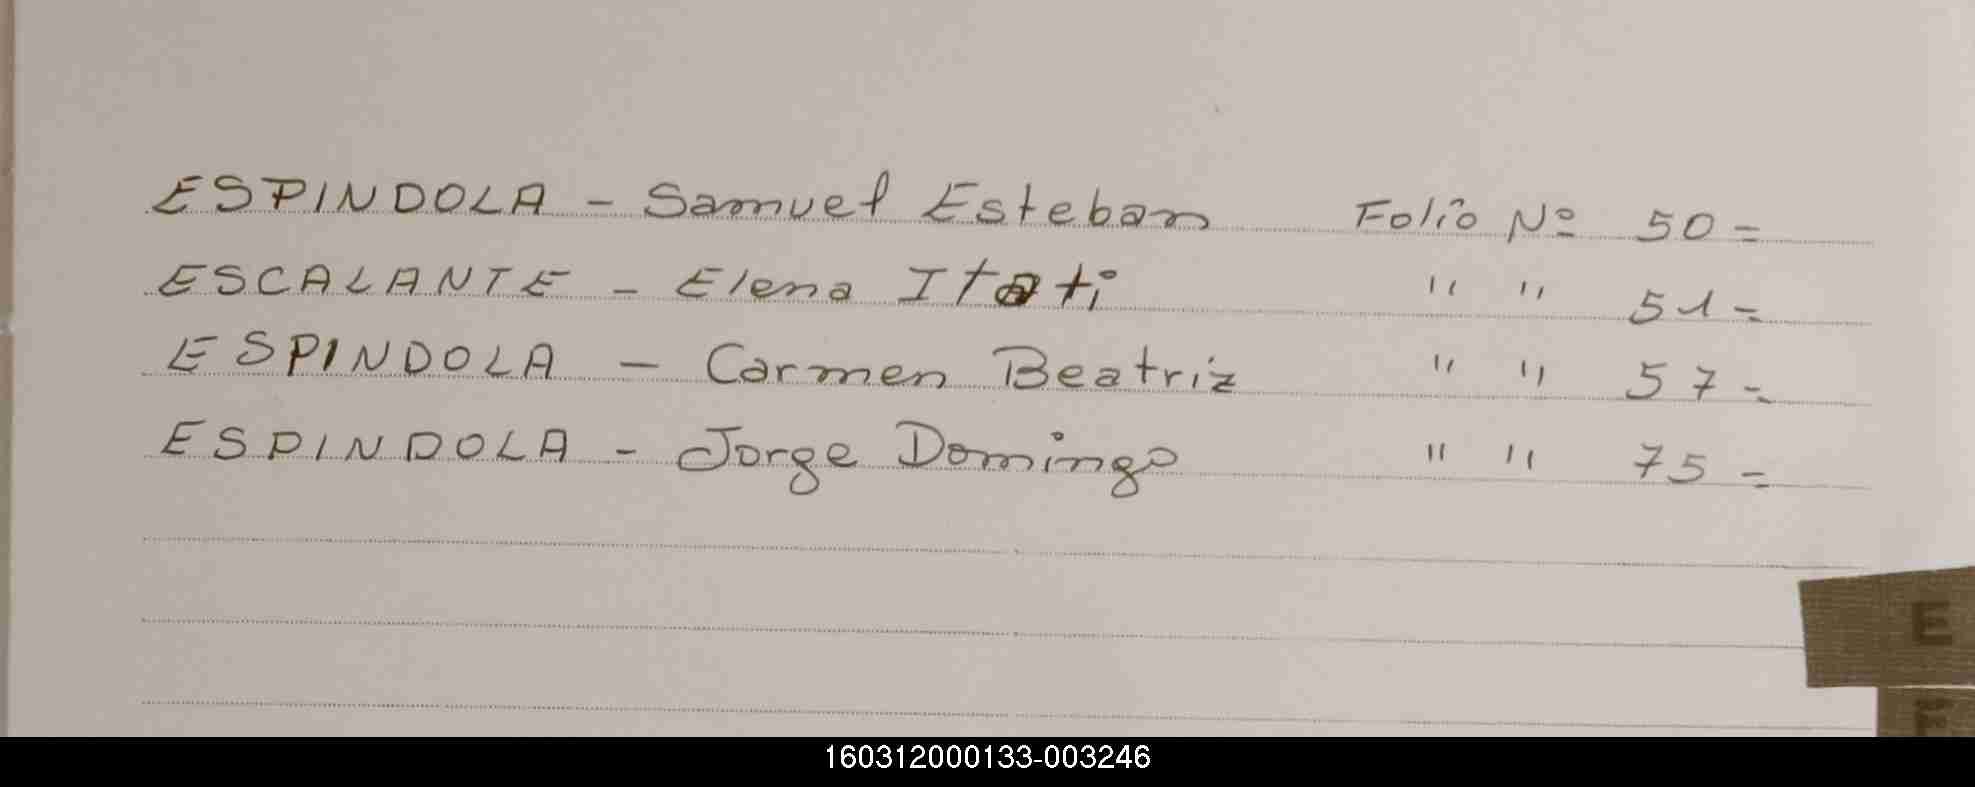 ESPINDOLA - Samuel Esteban Folio Nº 50 =
ESCALANTE - Elena Itati " " 51 =
ESPINDOLA - Carmen Beatriz " " 57 =
ESPINDOLA - Jorge Domingo " " 75 =
E
F
160312000133-003246